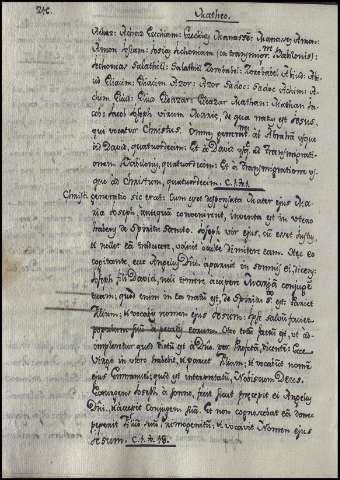 Matheo.
Achaz: Achaz Ezechiam: Ezechias Manassen: Manasses Amon:
Amon Josiam: Josias Jechoniam: in transmigr.m Babilonis:
Jechonias Salathiel: Salathiel Zorobabel: Zorobabel Abiud: Abi
ud Eliacim: Eliacim Azor: Azor Sadoc: Sadoc Achim: A
chim Eliud: Eliud Eleazar: Eleazar Mathan: Mathan Ja
cob: Jacob Joseph virum Mariæ, de qua natus est Jesus,
qui vocatur Christus. Omnes ab Abrahã usque
ad David, quatuordecim: Et à David usq. ad transmigrati
onem Babilonis, quatuordecim: Et à transmigratione us
que ad Christum, quatuordecim. C.1.℣.1.
Christi generatio sic erat: Cum esset desponsata Mater ejus Ma
ria Joseph, antequã convenirent, inventa est in utero
habens de Spiritu Sancto. Joseph vir ejus, cũ esset justus,
& nollet eam traducere, voluit occulte dimittere eam.
cogitante, ecce Angelus Dñi. apparuit in somnis ei, dicens:
Joseph fili David, noli timere accipere Mariam conjugẽ
tuam; quod enim in ea natũ est, de Spiritu S. est: Pariet
Filium; & vocabis nomen ejus Jesum: Ipse salvũ faciet
populum suũ à peccatis eorum. Hoc totũ factũ est, ut ad
impleretur quod dictũ est à Dño. per Profetã, dicentẽ: Ecce
Virgo in utero habebit, & pariet Filium; & vocabunt nomẽ
ejus Emmanuel; quod est interpretatũ, Nobiscum Deus.
Exurgens Joseph à somno, fecit sicut præcepit ei Angelus
Dñi. & accepit conjugem suã. Et non cognoscebat eã donec
peperit Filiũ suũ Primogenitũ; & vocavit Nomen ejus
Jesum. C.1.℣.18.